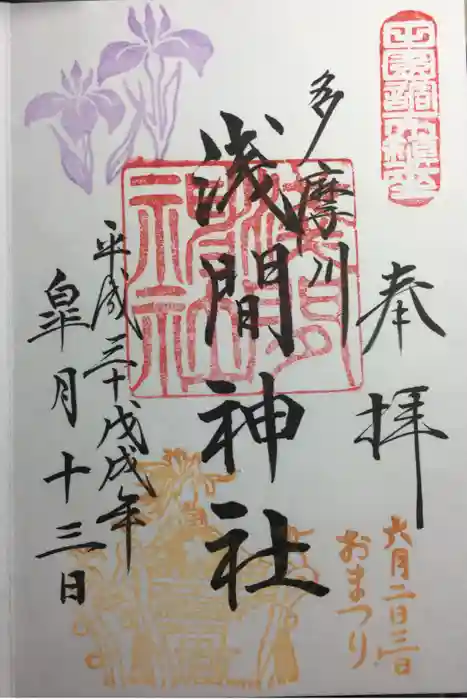 田園調布鎮座
奉拝
六月二日三日
おまつり
多摩川
浅間神社
浅間
神社
平成三十戊戌年
皐月十三日